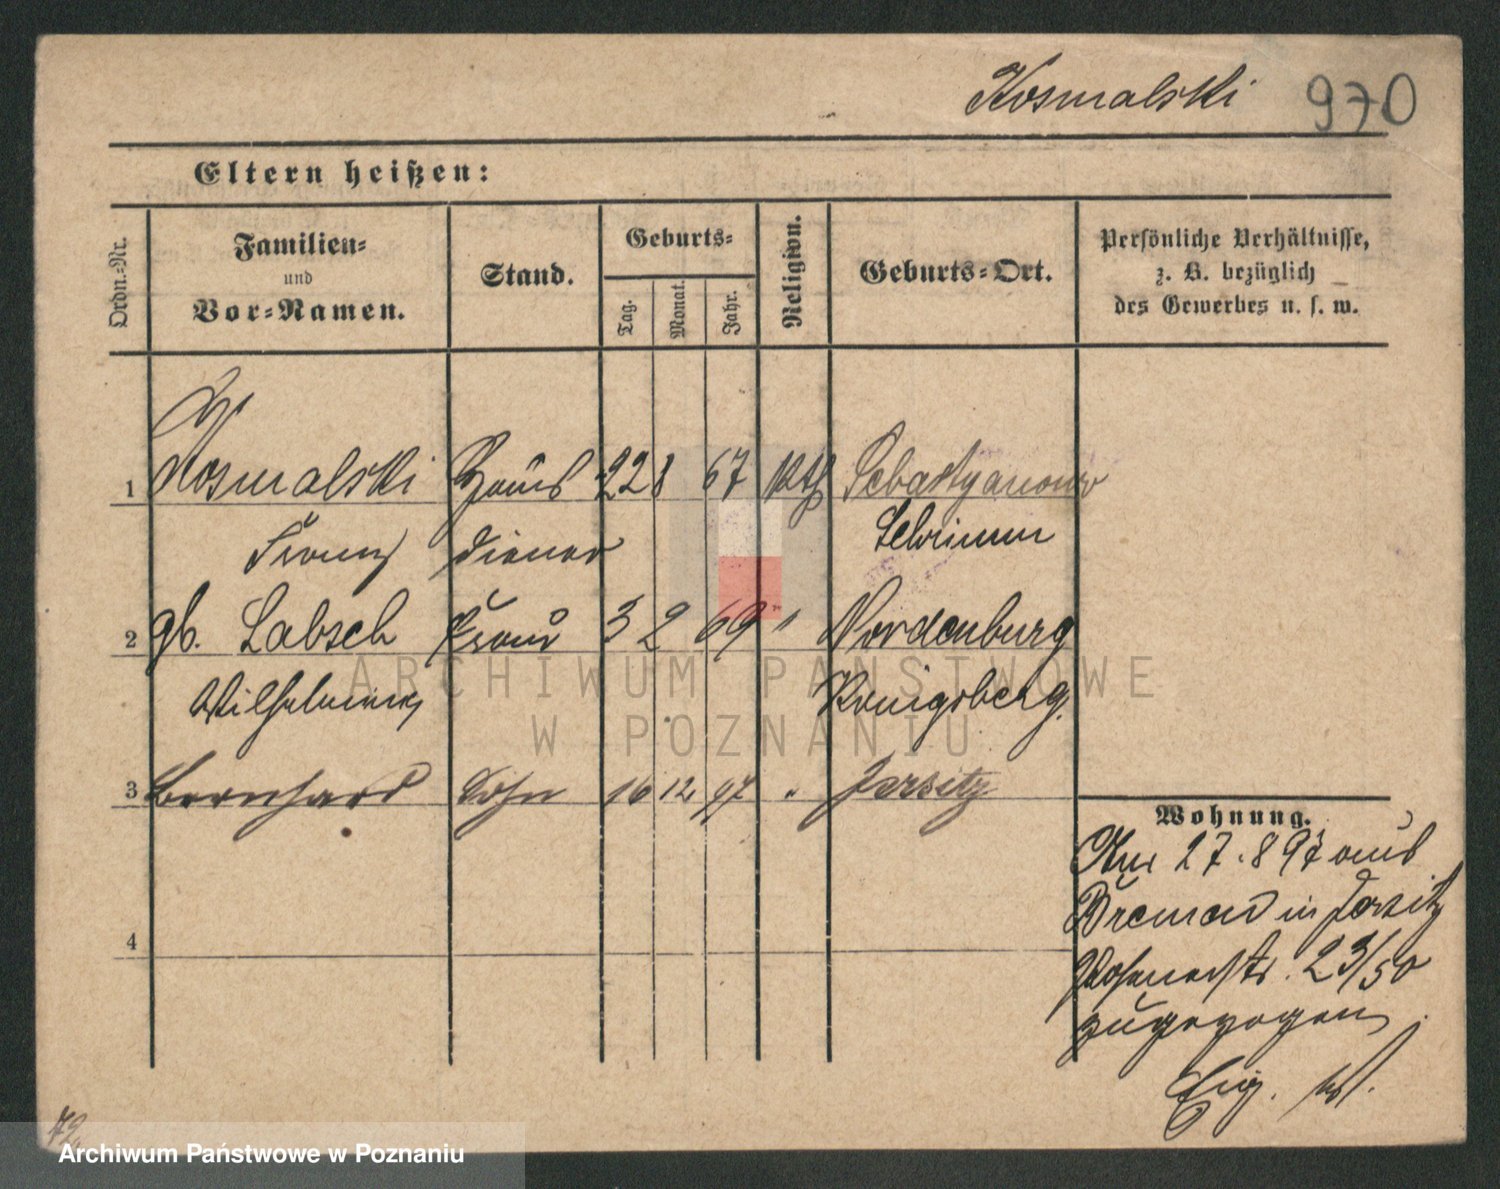 Kosmalski 970
Eltern heißen:
Ordn.-Nr.
Familien-
und
Vor-Namen.
Stand.
Geburts-
Tag.
Monat.
Jahr.
Religion.
Geburts-Ort.
Persönliche Verhältnisse,
z. B. bezüglich
des Gewerbes u. s. w.
1 Kosmalski Haus 22 8 67 kth Sebastyanowo
Franz diener Schrimm
2 gb. Labsch Frau 3 2 69 " Nordenburg
Wilhelmine Königsberg.
3 Bernhard Sohn 16 12 97 " Jersitz
4
Wohnung.
Am 27.8 97 aus
Bremen in Jersitz
Posenerstr. 23/50
zugezogen
72
ARCHIWUM PAŃSTWOWE
W POZNANIU
Archiwum Państwowe w Poznaniu